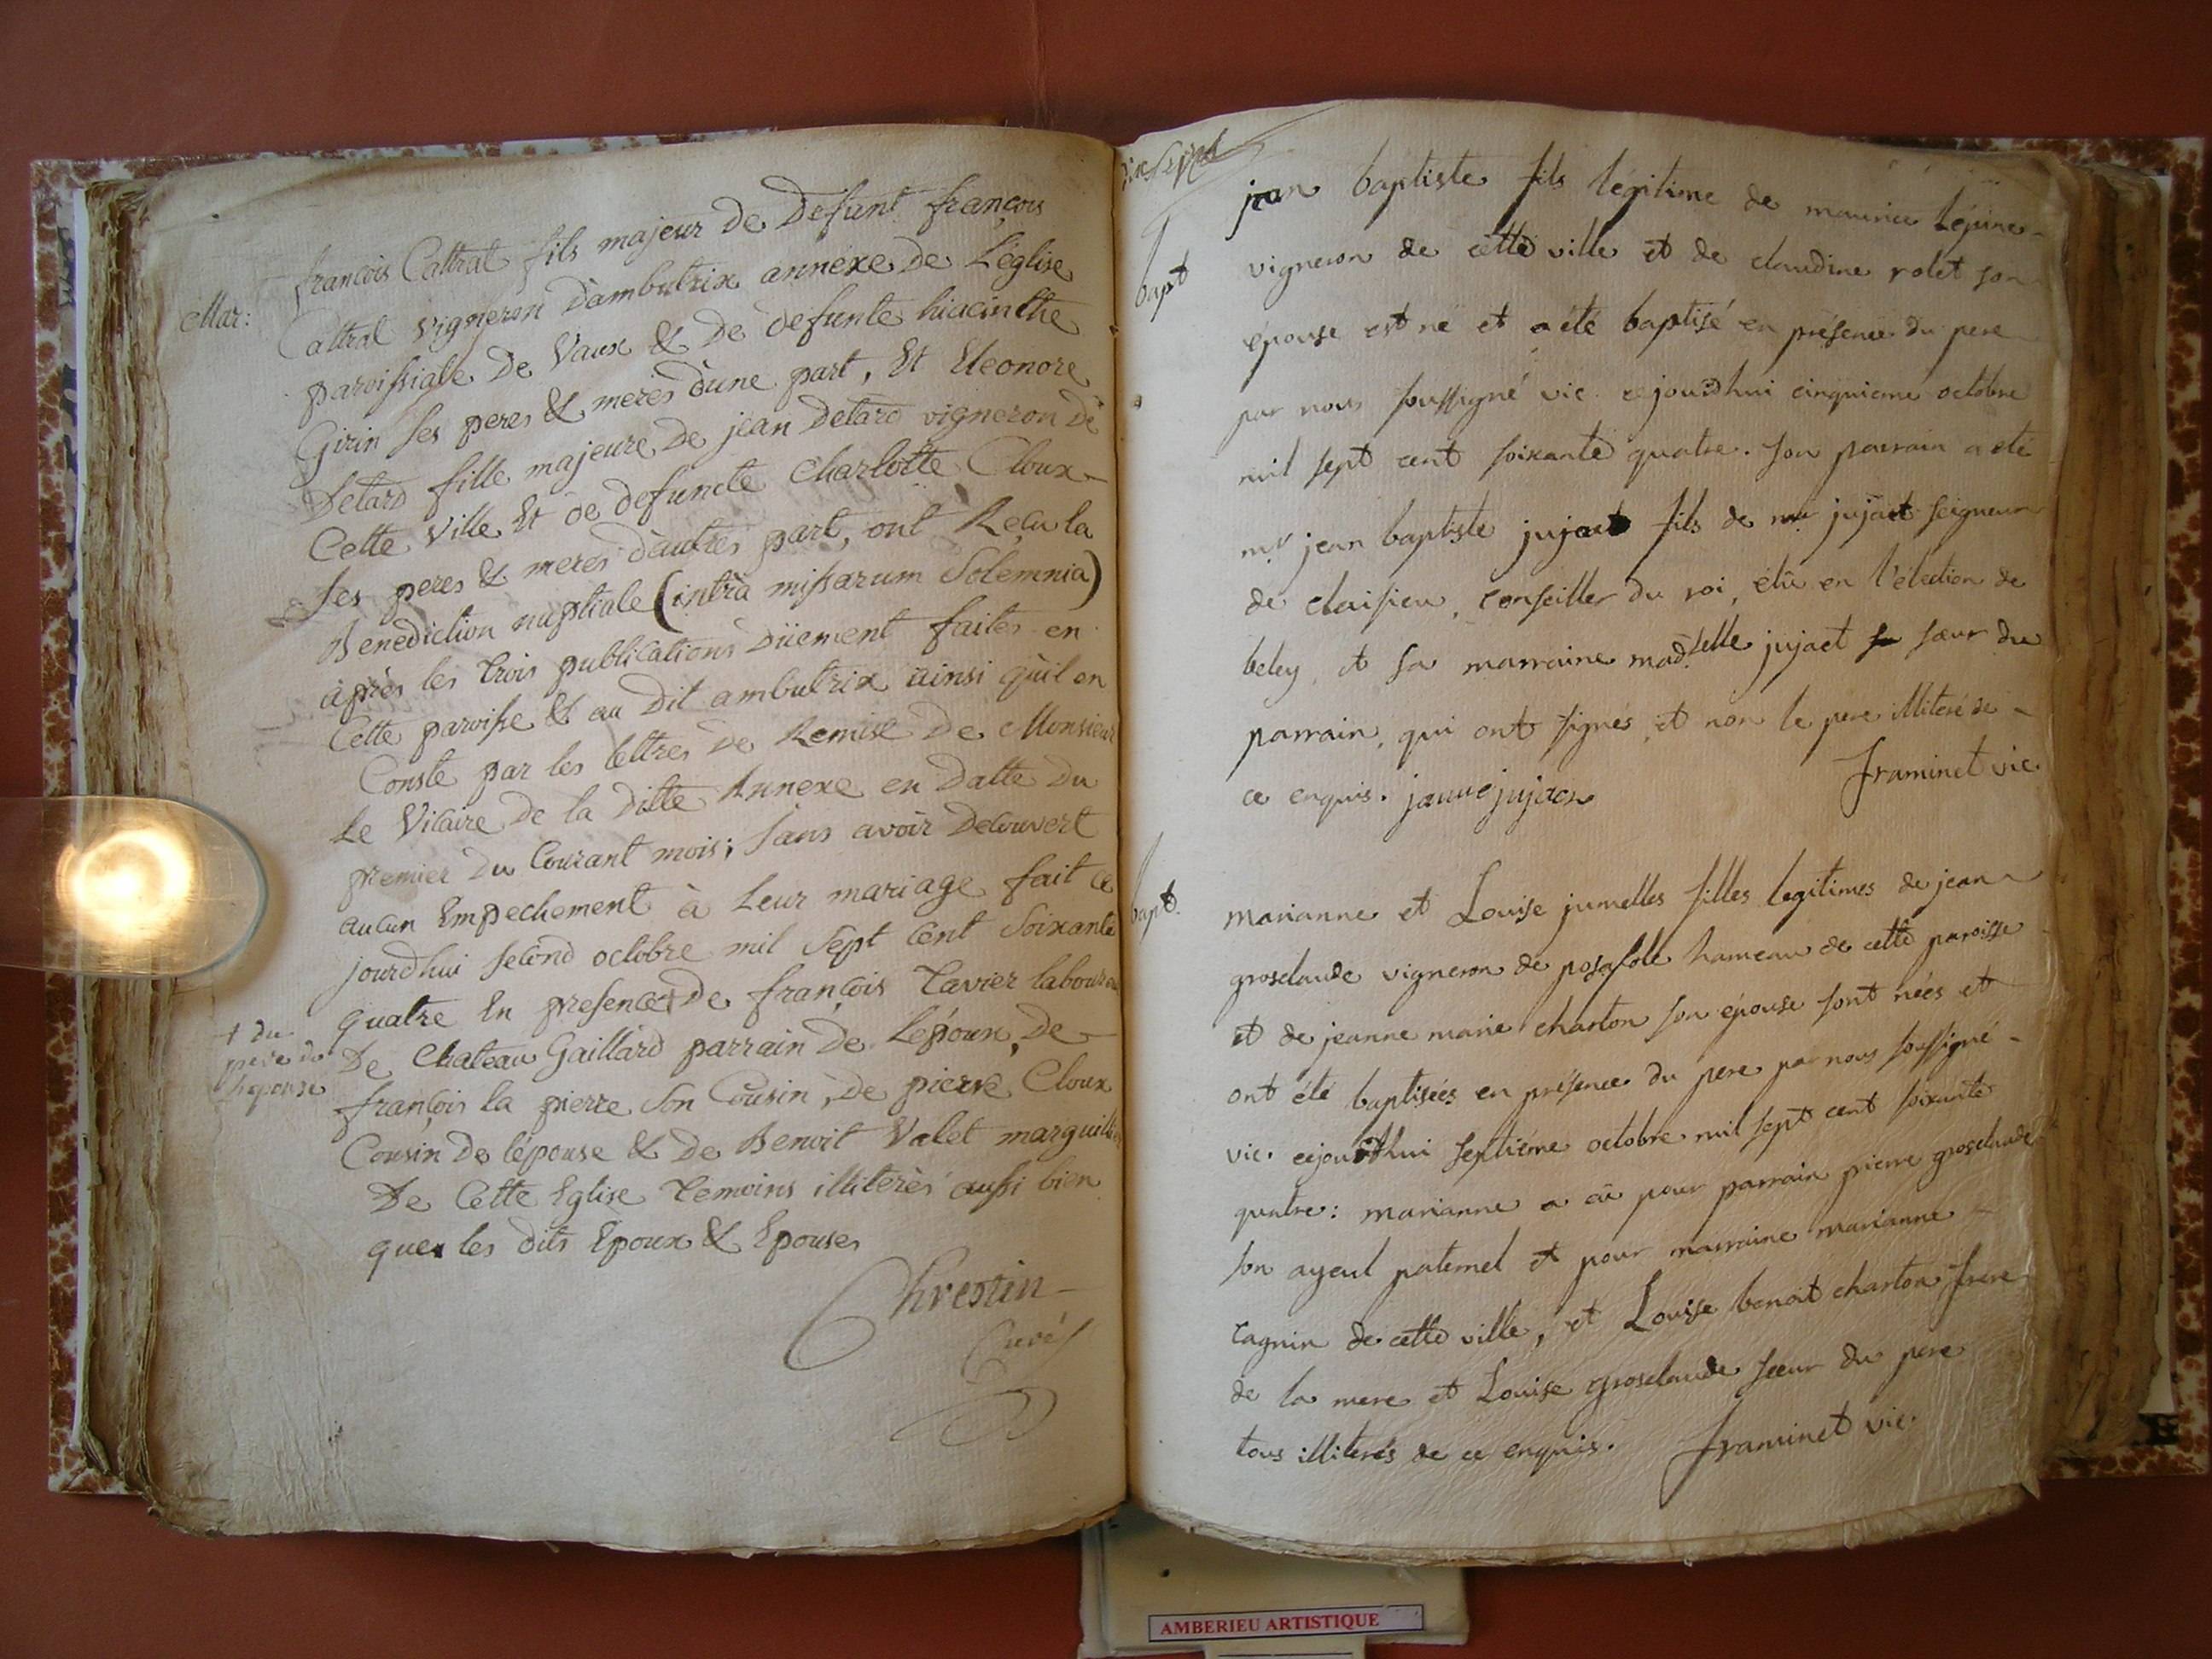 Mar:
francois Cattrat fils majeur de Defunt françois
Cattrat vigneron Dambutrix annéxe de L'église
paroissiale De Vaux & De defunte hiacinthe
Girin ses peres & meres d'une part, Et Eleonore
Detard fille majeure de jean Detard vigneron de
Cette Ville Et de defuncte Charlotte Cloux
ses peres & meres d'autres part, ont Reçu la
Benediction nuptiale (intrà missarum Solemnia)
àprès les trois publications Düement faites en
Cette paroisse & au Dit ambutrix ainsi qu'il en
Conste par les lettres de Remise De Monsieur
Le Vicaire de la ditte Annexe en datte du
premier du Courant mois; sans avoir Decouvert
aucun Empechement à Leur mariage fait ce
jourdhui second octobre mil sept cent soixante
quatre En presence + de françois Tavier laboureu
De Chateau Gaillard parrain de Lépoux, de
françois la pierre son Cousin, De pierre Cloux
Cousin De lépouse & De Benoit Valet marguillier
De Cette Eglise temoins illiterés aussi bien
que les dits Epoux & Epouses
+ du
pere de
l'epouse
Chrestin
Curé
dix sept
bapt
jean baptiste fils légitime de maurice Lépine
vigneron de cette ville et de claudine rolet son
épouse est né et a été baptisé en présence du pere
par nous soussigné vic. cejourdhui cinquieme octobre
mil sept cent soixante quatre. son parrain a été
mr jean baptiste jujat fils de mr jujat seigneur
de claisieu, conseiller du roi, élu en l'élection de
beley, et sa marraine mad.selle jujat sœur du
parrain, qui ont signés, et non le pere illiteré de
ce enquis.
framinet vic.
bapt.
marianne et Louise jumelles filles legitimes de jean
grosclaude vigneron de posafolle hameau de cette paroisse
et de jeanne marie charton son épouse sont nées et
ont été baptisées en présence du pere par nous soussigné
vic. cejourdhui septiéme octobre mil sept cent soixante
quatre: marianne a eü pour parrain pierre grosclaude
son ayeul paternel et pour marraine marianne
cagnin de cette ville, et Louise benoit charton frere
de la mere et Louise grosclaude sœur du pere
tous illiterés de ce enquis. framinet vic.
AMBERIEU ARTISTIQUE